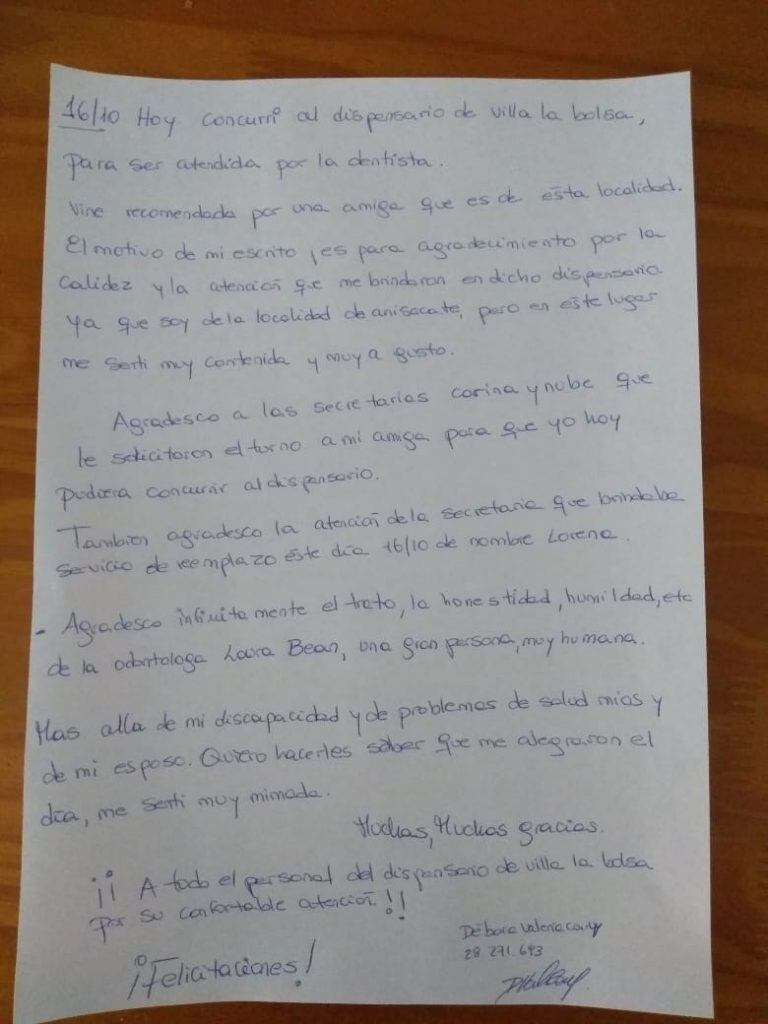 16/10 Hoy concurri al dispensario de villa la bolsa,
para ser atendida por la dentista.
Vine recomendada por una amiga que es de esta localidad.
El motivo de mi escrito, es para agradecimiento por la
Calidez y la atención que me brindaron en dicho dispensario.
Ya que soy de la localidad de anisacate, pero en este lugar
me senti muy contenida y muy a gusto.
Agradesco a las secretarias corina y nube que
le solicitaron el turno a mi amiga para que yo hoy
pudiera concurrir al dispensario.
Tambien agradesco la atención de la secretaria que brindaba
servicio de reemplazo éste día 16/10 de nombre Lorena.
- Agradesco infinitamente el trato, la honestidad, humildad, etc
de la odontologa Laura Bean, una gran persona, muy humana.
Mas alla de mi discapacidad y de problemas de salud mios y
de mi esposo. Quiero hacerles saber que me alegraron el
día, me senti muy mimada.
Muchas, Muchas gracias.
¡¡ A todo el personal del dispensario de villa la bolsa
por su confortable atención!!
¡Felicitaciones!
Débora Valeria
28 271.643